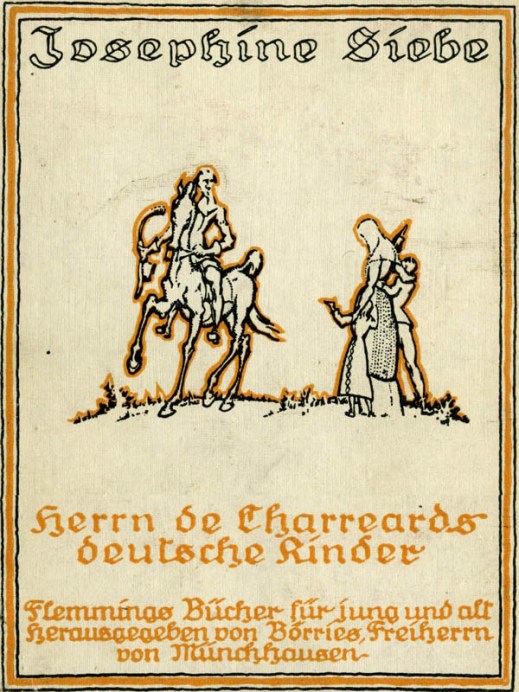 Josephine Siebe
Herrn de Charreards
deutsche Kinder
Flemmings Bücher für jung und alt
Herausgegeben von Börries, Freiherrn
von Münchhausen-